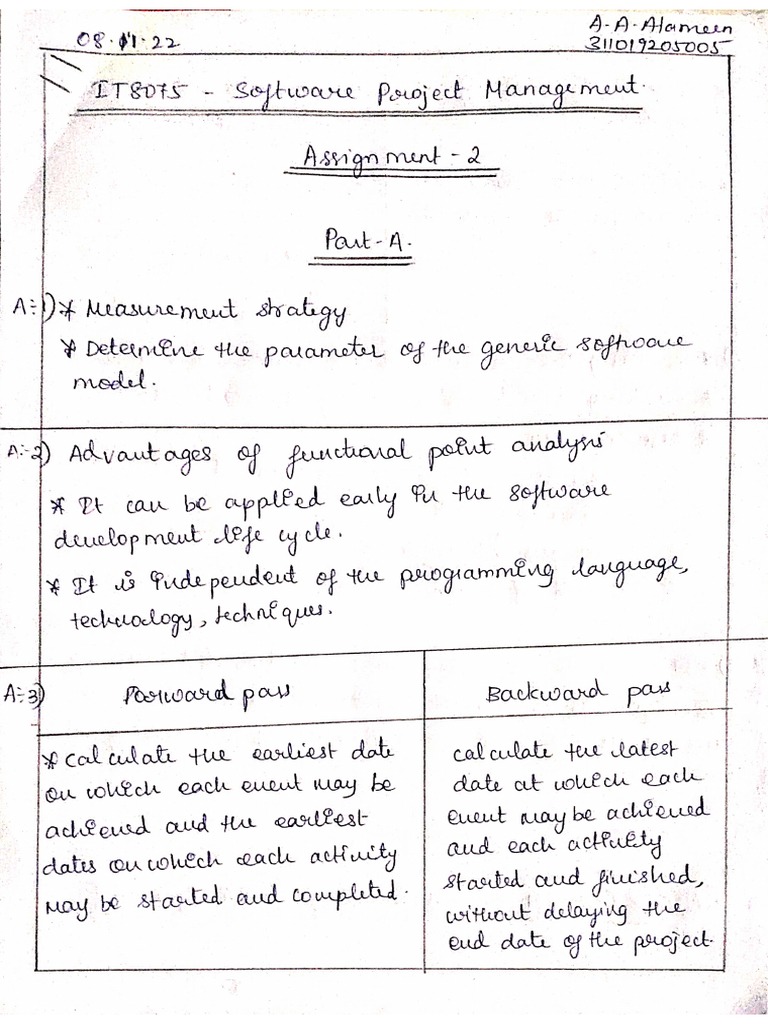 08.11.22
A.A.Alameen
311019205005
IT8075 - Software Project Management.
Assignment - 2
Part-A.
A÷1) * Measurement strategy
* Determine the parameter of the generic software
model.
A÷2) Advantages of functional point analysis
* It can be applied early in the software
development life cycle.
* It is independent of the programming language,
technology, techniques.
A÷3) Forward pass
Backward pass
* calculate the earliest date
on which each event may be
achieved and the earliest
dates on which each activity
may be started and completed.
calculate the latest
date at which each
event may be achieved
and each activity
started and finished,
without delaying the
end date of the project.